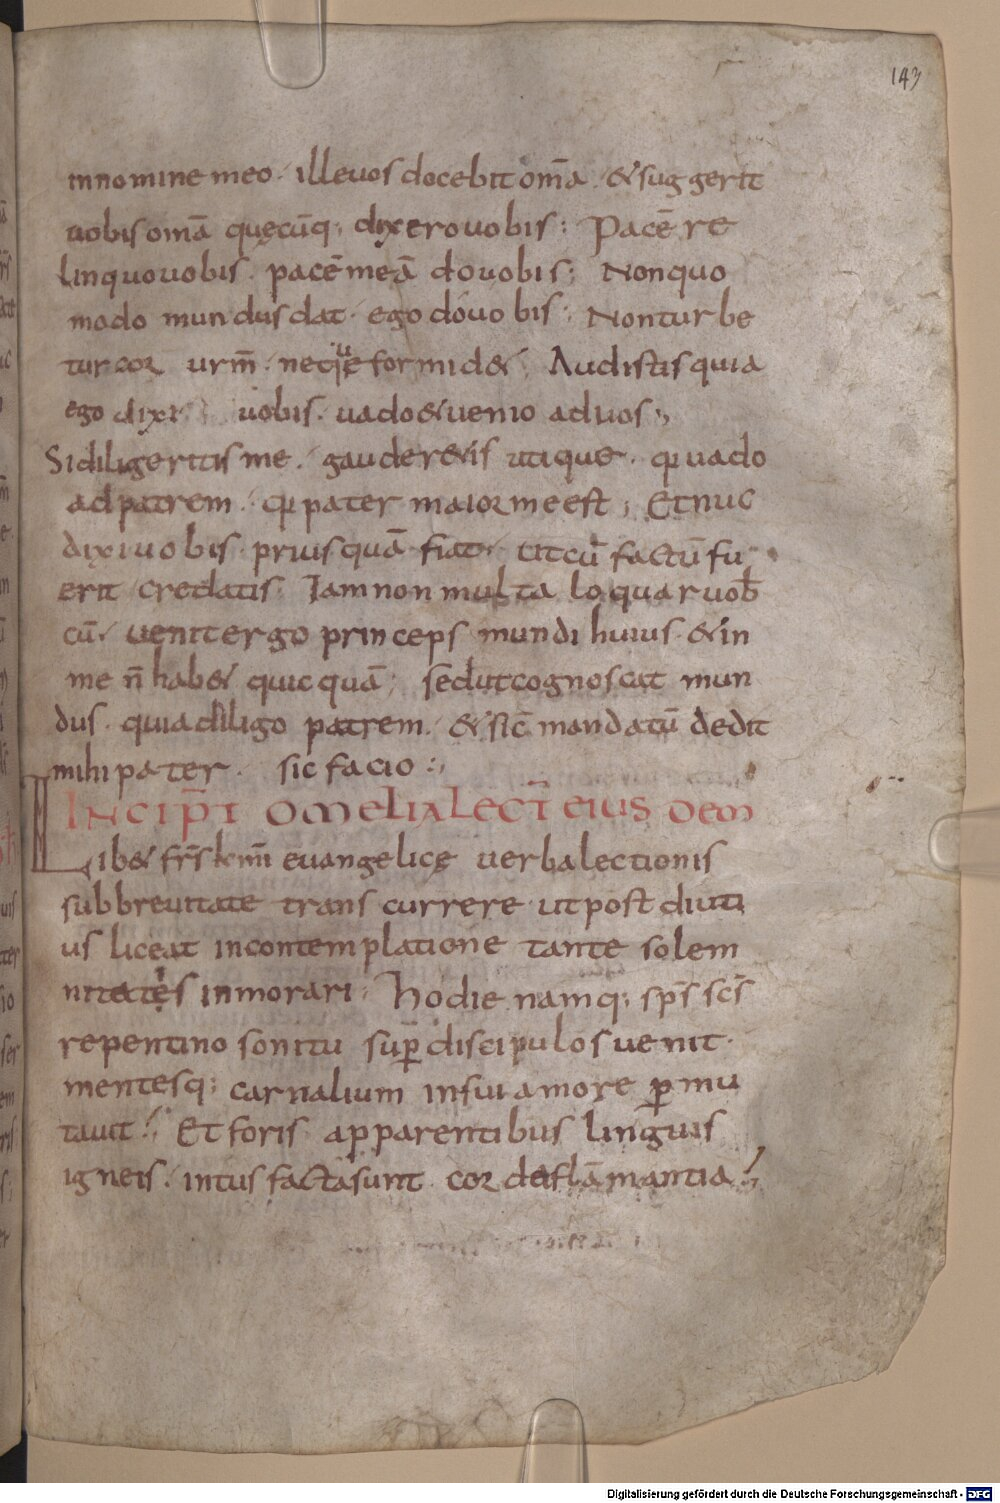 143
in nomine meo · ille uos docebit om̄a · & suggerit
uobis om̄a quęcūq; dixero uobis : Pacē re
linquo uobis · pacē meā do uobis ; Non quo
modo mundus dat · ego do uobis ; Non turbe
tur cor urm̄ · neque formid& ; Audistis quia
ego dixi uobis · uado & uenio ad uos ;
Si diligeritis me · gauder&is utique · qꝛ uado
ad patrem · qꝛ pater maior me est ; Et nuc
dixi uobis · prius quā fiat · ut cū factū fu
erit credatis · Iam non multa loquar uob̄
cū · uenit ergo princeps mundi huius · & in
me n̄ hab& quic quā ; sed ut cognoscat mun
dus · quia diligo patrem · & sic̄ mandatū dedit
mihi pater · sic facio :
INCIP̄T OMELIA LECT̄ EIUSDEM
Lib& frs̄ km̄i euangelicę uerba lectionis
sub breuitate transcurrere · ut post diuti
us liceat in contemplatione tante solem
nitatęs inmorari ; Hodie namq; sps̄ scs̄
repentino sonitu sup̄ discipulos uenit ·
mentesq; carnalium in sui amore p̱mu
tauit ; Et foris apparentibus linguis
igneis · intus facta sunt cor de flāmantia ;
Digitalisierung gefördert durch die Deutsche Forschungsgemeinschaft - DFG